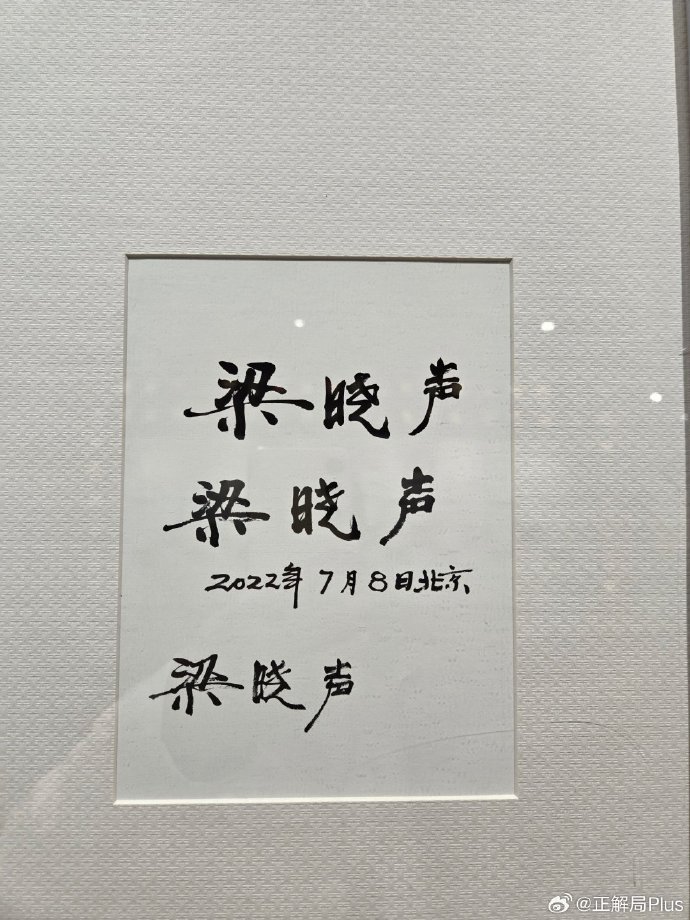 梁晓声
梁晓声
2022年7月8日北京
梁晓声
@正解局Plus